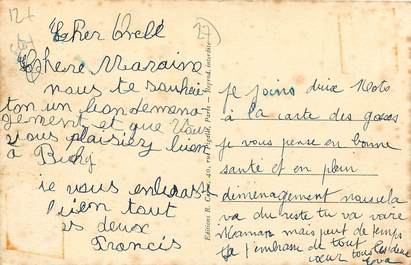 12+
27
cher Orelé
chere Marain
nous te souhai
ton un bon demena
gement et que vous
vous plaisiez bien
à
je vous embrasse
bien tout
es deux
Francis
Editions R. 49, rue Paris — Reprod. interdite
je joins deux mots
à la carte des gosses
je vous pense en bonne
santé et en plein
déménagement nous cela
va du reste tu va voire
Maman mais peut de temps
Ta t'embrasse de tout
cœur tous les deux